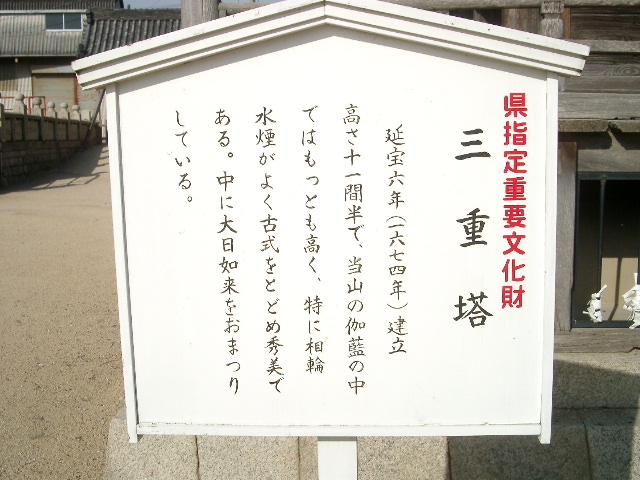 県指定重要文化財
三重塔
延宝六年(一六七四年)建立
高さ十一間半で、当山の伽藍の中
ではもっとも高く、特に相輪
水煙がよく古式をとどめ秀美で
ある。中に大日如来をおまつり
している。